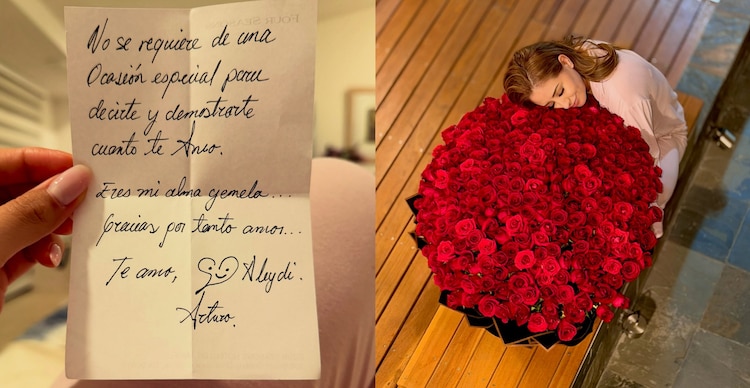 No se requiere de una
Ocasión especial para
decirte y demostrarte
cuanto te Amo.
Eres mi alma gemela...
Gracias por tanto amor...
Te amo, Aleydi.
Arturo.